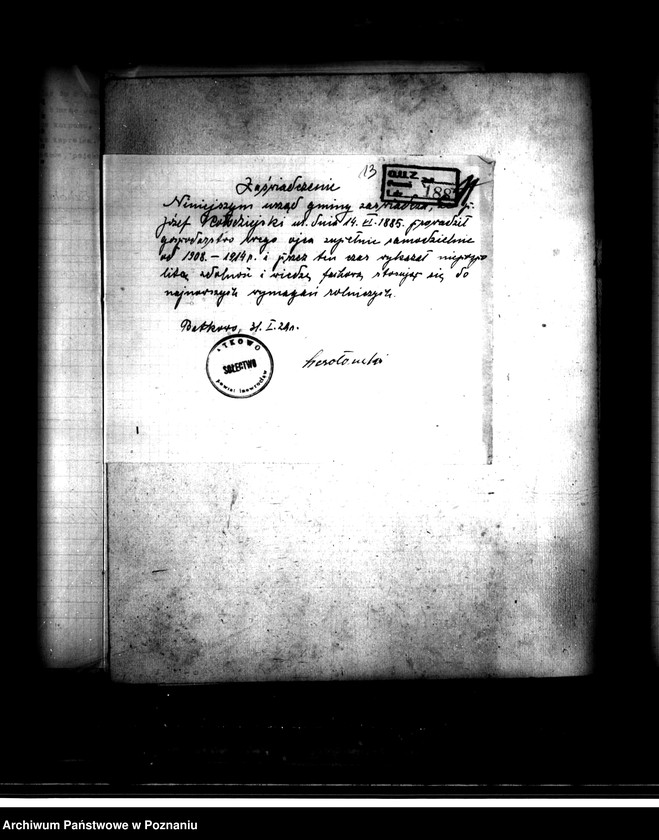 13
O.U.Z.
188
Zaświadczenie
Niniejszym urząd gminy zaświadcza, że p.
Józef ur. dnia 14. XI. 1885. prowadził
gospodarstwo swego ojca zupełnie samodzielnie
od 1908. – 1914 r. i przez ten czas wykazał niepospo
litą zdolność i wiedzę fachową stosując się do
najnowszych wymagań rolniczych.
Batkowo, 31. I. 29 r.
TKOWO
SOŁECTWO
powiat Inowrocław
Archiwum Państwowe w Poznaniu